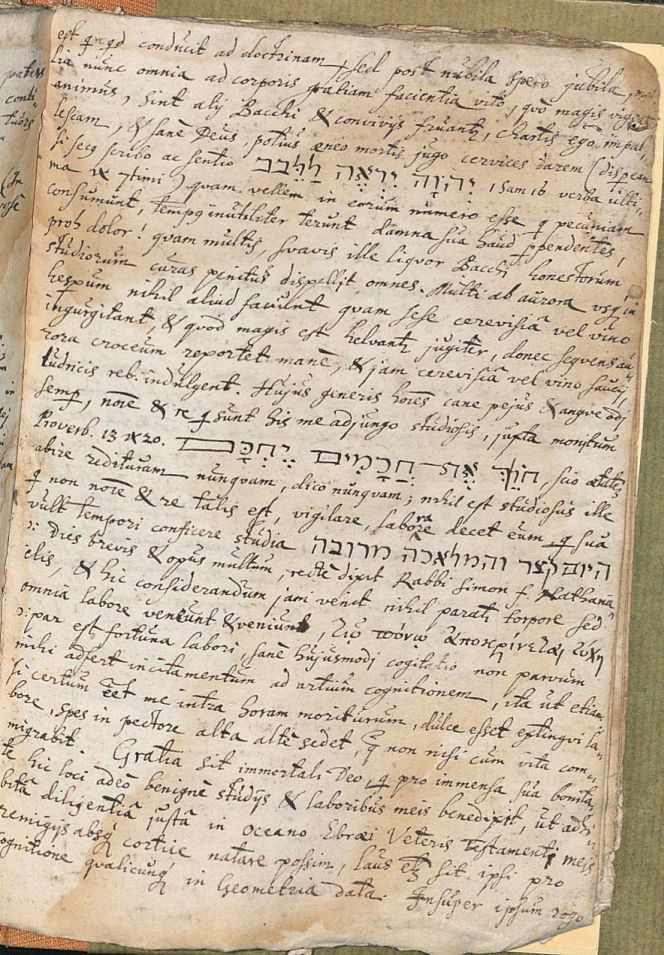 est q qd conducit ad doctrinam, sed post nubila spero jubila,
lia nunc omnia ad corporis gratiam facientia vito, quò magis vigeat
animus, sint alij Bacchi & convivijs fruantr, chartis ego impal,
lescam, & sanè Deus, potius æneo mortis jugo cervices darem (dispeream
si secq scribo ac sentio יְהוָה יִרְאֶה לַלֵּבָב, 1 Sam 16 verba ulti=
ma 7timi) quam vellem in eorum numero esse q pecuniam
consumunt, tempq inutiliter terunt damna sua haud ppendentes,
proh dolor! quam multis, suavis ille liquor Bacchi honestorum
studiorum curas penitus dispellit omnes. Multi ab aurora usq in
hespum nihil aliud faciunt quam sese cerevisiâ vel vino
ingurgitant, & quod magis est helvantr jugiter, donec sequens au
rora croceum reportet manè, & jam cerevisiâ vel vino sauci,
ludicris reb. indulgent. Hujus generis hoies cane pejus & angve odi
semp, noie & re q sunt his me adjungo studiosis, juxta monitum
Proverb. 13 20. הוֹלֵךְ אֶת־חֲכָמִים יֶחְכָּם, scio ætatem
abire redituram nunquam, dico nunquam; nihil est studiosus ille
q non noie & re talis est, vigilare, laborare decet eum q sua
vult tempori conficere studia היום קצר והמלאכה מרובה
ɔ: dies brevis & opus multum, rectè dixit Rabbi Simon f. Nathana
elis, & hic considerandum jam venit nihil parati torpore sed
omnia labore veneunt & veniunt, πόνῳ ἀποκρίνεται τύχη
ɔ: par est fortuna labori, sanè hujusmodj cogitatio non parvum
mihi adfert incitamentum ad artium cognitionem, ita ut etiam
si certum eet me intra horam moriturum, dulce esset extingvi la=
bore, spes in pectore alta altè sedet, q non nisi cum vita com=
migrabit. Gratia sit immortali Deo, q pro immensa sua bonita,
te hic loci adeò benignè studijs & laboribus meis benedixit, ut adhi=
bitâ diligentiâ justâ in oceano Ebræi Veteris Testamenti meis
remigijs absq cortice natare possim, laus et sit ipsi pro
cognitione qualicunq in Geometria data. Insuper ipsum rogo